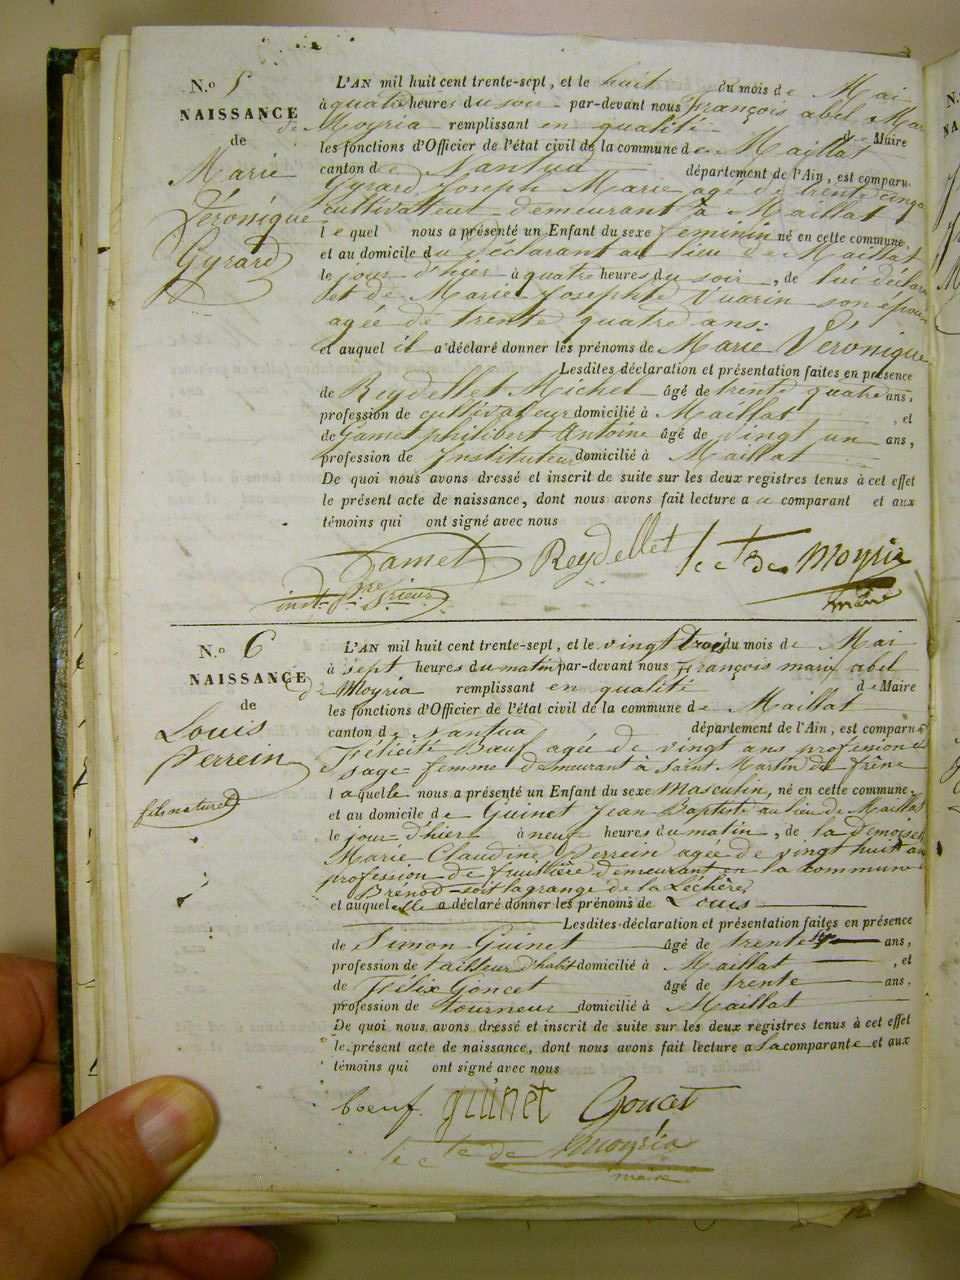 N.o 5
NAISSANCE
de
Marie
Véronique
Gyrard
L'AN mil huit cent trente-sept, et le huit du mois de Mai
à quatre heures du soir par-devant nous François abel Mar
de Moyria remplissant en qualité de Maire
les fonctions d'Officier de l'état civil de la commune de Maillat
canton de Nantua département de l'Ain, est comparu
Gyrard Joseph Marie agé de trente cinq a
cultivateur demeurant à Maillat
lequel nous a présenté un Enfant du sexe feminin né en cette commune,
et au domicile du déclarant au lieu de Maillat
le jour d'hier à quatre heures du soir, de lui déclara
et de Marie Josephte Vuarin son épous
agée de trente quatre ans:
et auquel il a déclaré donner les prénoms de Marie Véronique
Lesdites déclaration et présentation faites en présence
de Reydellet Michel âgé de trente quatre ans,
profession de cultivateur domicilié à Maillat, et
de Gamet philibert Antoine âgé de vingt un ans,
profession de Instituteur domicilié à Maillat
De quoi nous avons dressé et inscrit de suite sur les deux registres tenus à cet effet
le présent acte de naissance, dont nous avons fait lecture au comparant et aux
témoins qui ont signé avec nous
Gamet Reydellet le cte de Moyria
maire
N.o 6
NAISSANCE
de
Louis
Perrein
fils naturel
L'AN mil huit cent trente-sept, et le vingt trois du mois de Mai
à sept heures du matin par-devant nous François marie abel
de Moyria remplissant en qualité de Maire
les fonctions d'Officier de l'état civil de la commune de Maillat
canton de Nantua département de l'Ain, est comparu
Félicité Bœuf agée de vingt ans profession de
sage femme demeurant à Saint Martin du frêne
laquelle nous a présenté un Enfant du sexe Masculin, né en cette commune,
et au domicile de Guinet Jean Baptiste au lieu de Maillat
le jour d'hier à neuf heures du matin, de la Demoisel
Marie Claudine Perrein agée de vingt huit an
profession de fruitière demeurant en la commune
Brénod soit la grange de la Léchère
et auquel elle a déclaré donner les prénoms de Louis
Lesdites déclaration et présentation faites en présence
de Simon Guinet âgé de trente ans,
profession de tailleur d'habit domicilié à Maillat, et
de Félix Goncet âgé de trente ans,
profession de tourneur domicilié à Maillat
De quoi nous avons dressé et inscrit de suite sur les deux registres tenus à cet effet
le présent acte de naissance, dont nous avons fait lecture a la comparante et aux
témoins qui ont signé avec nous
bœuf guinet Goncet
le cte de Moyria
maire